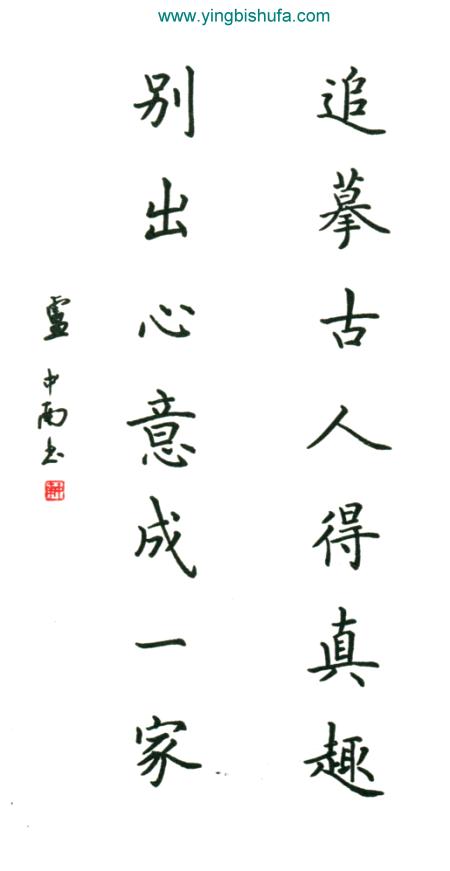 www.yingbishufa.com
追摹古人得真趣
别出心意成一家
盧中南书